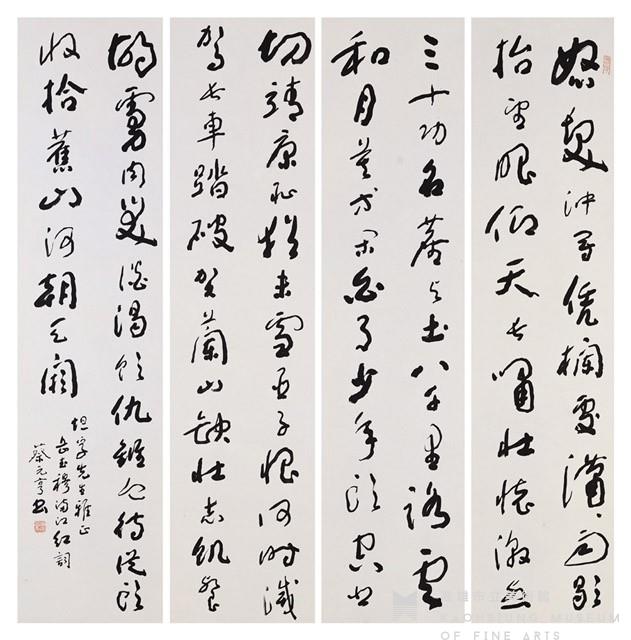 怒髮沖冠凭欄處瀟〻雨歇
抬望眼仰天長嘯壯懷激烈
三十功名塵与土八千里路雲
和月莫等閒白了少年頭空悲
切靖康恥猶未雪臣子恨何時滅
駕長車踏破賀蘭山缺壯志飢餐
胡虜肉笑談渴飲仇讎血待從頭
收拾舊山河朝天闕
先生雅正
岳武穆滿江紅詞
蔡元亨書
高雄市立美術館
KAOHSIUNG MUSEUM
OF FINE ARTS